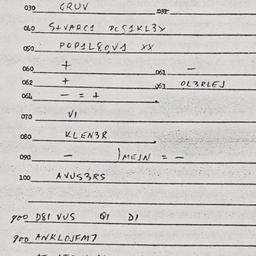 030 GRUV 031
040 S+VARC1 PCS1KL3X
050 POP1L8QV1 XX
060 + 061 -
062 + 063 OL3RLEJ
064 - = +
070 VI
080 KLEN3R
090 - )MEIN = -
100 AVUS3RS
900 D81 VUS Q1 DI
900 ANKLOJFM7